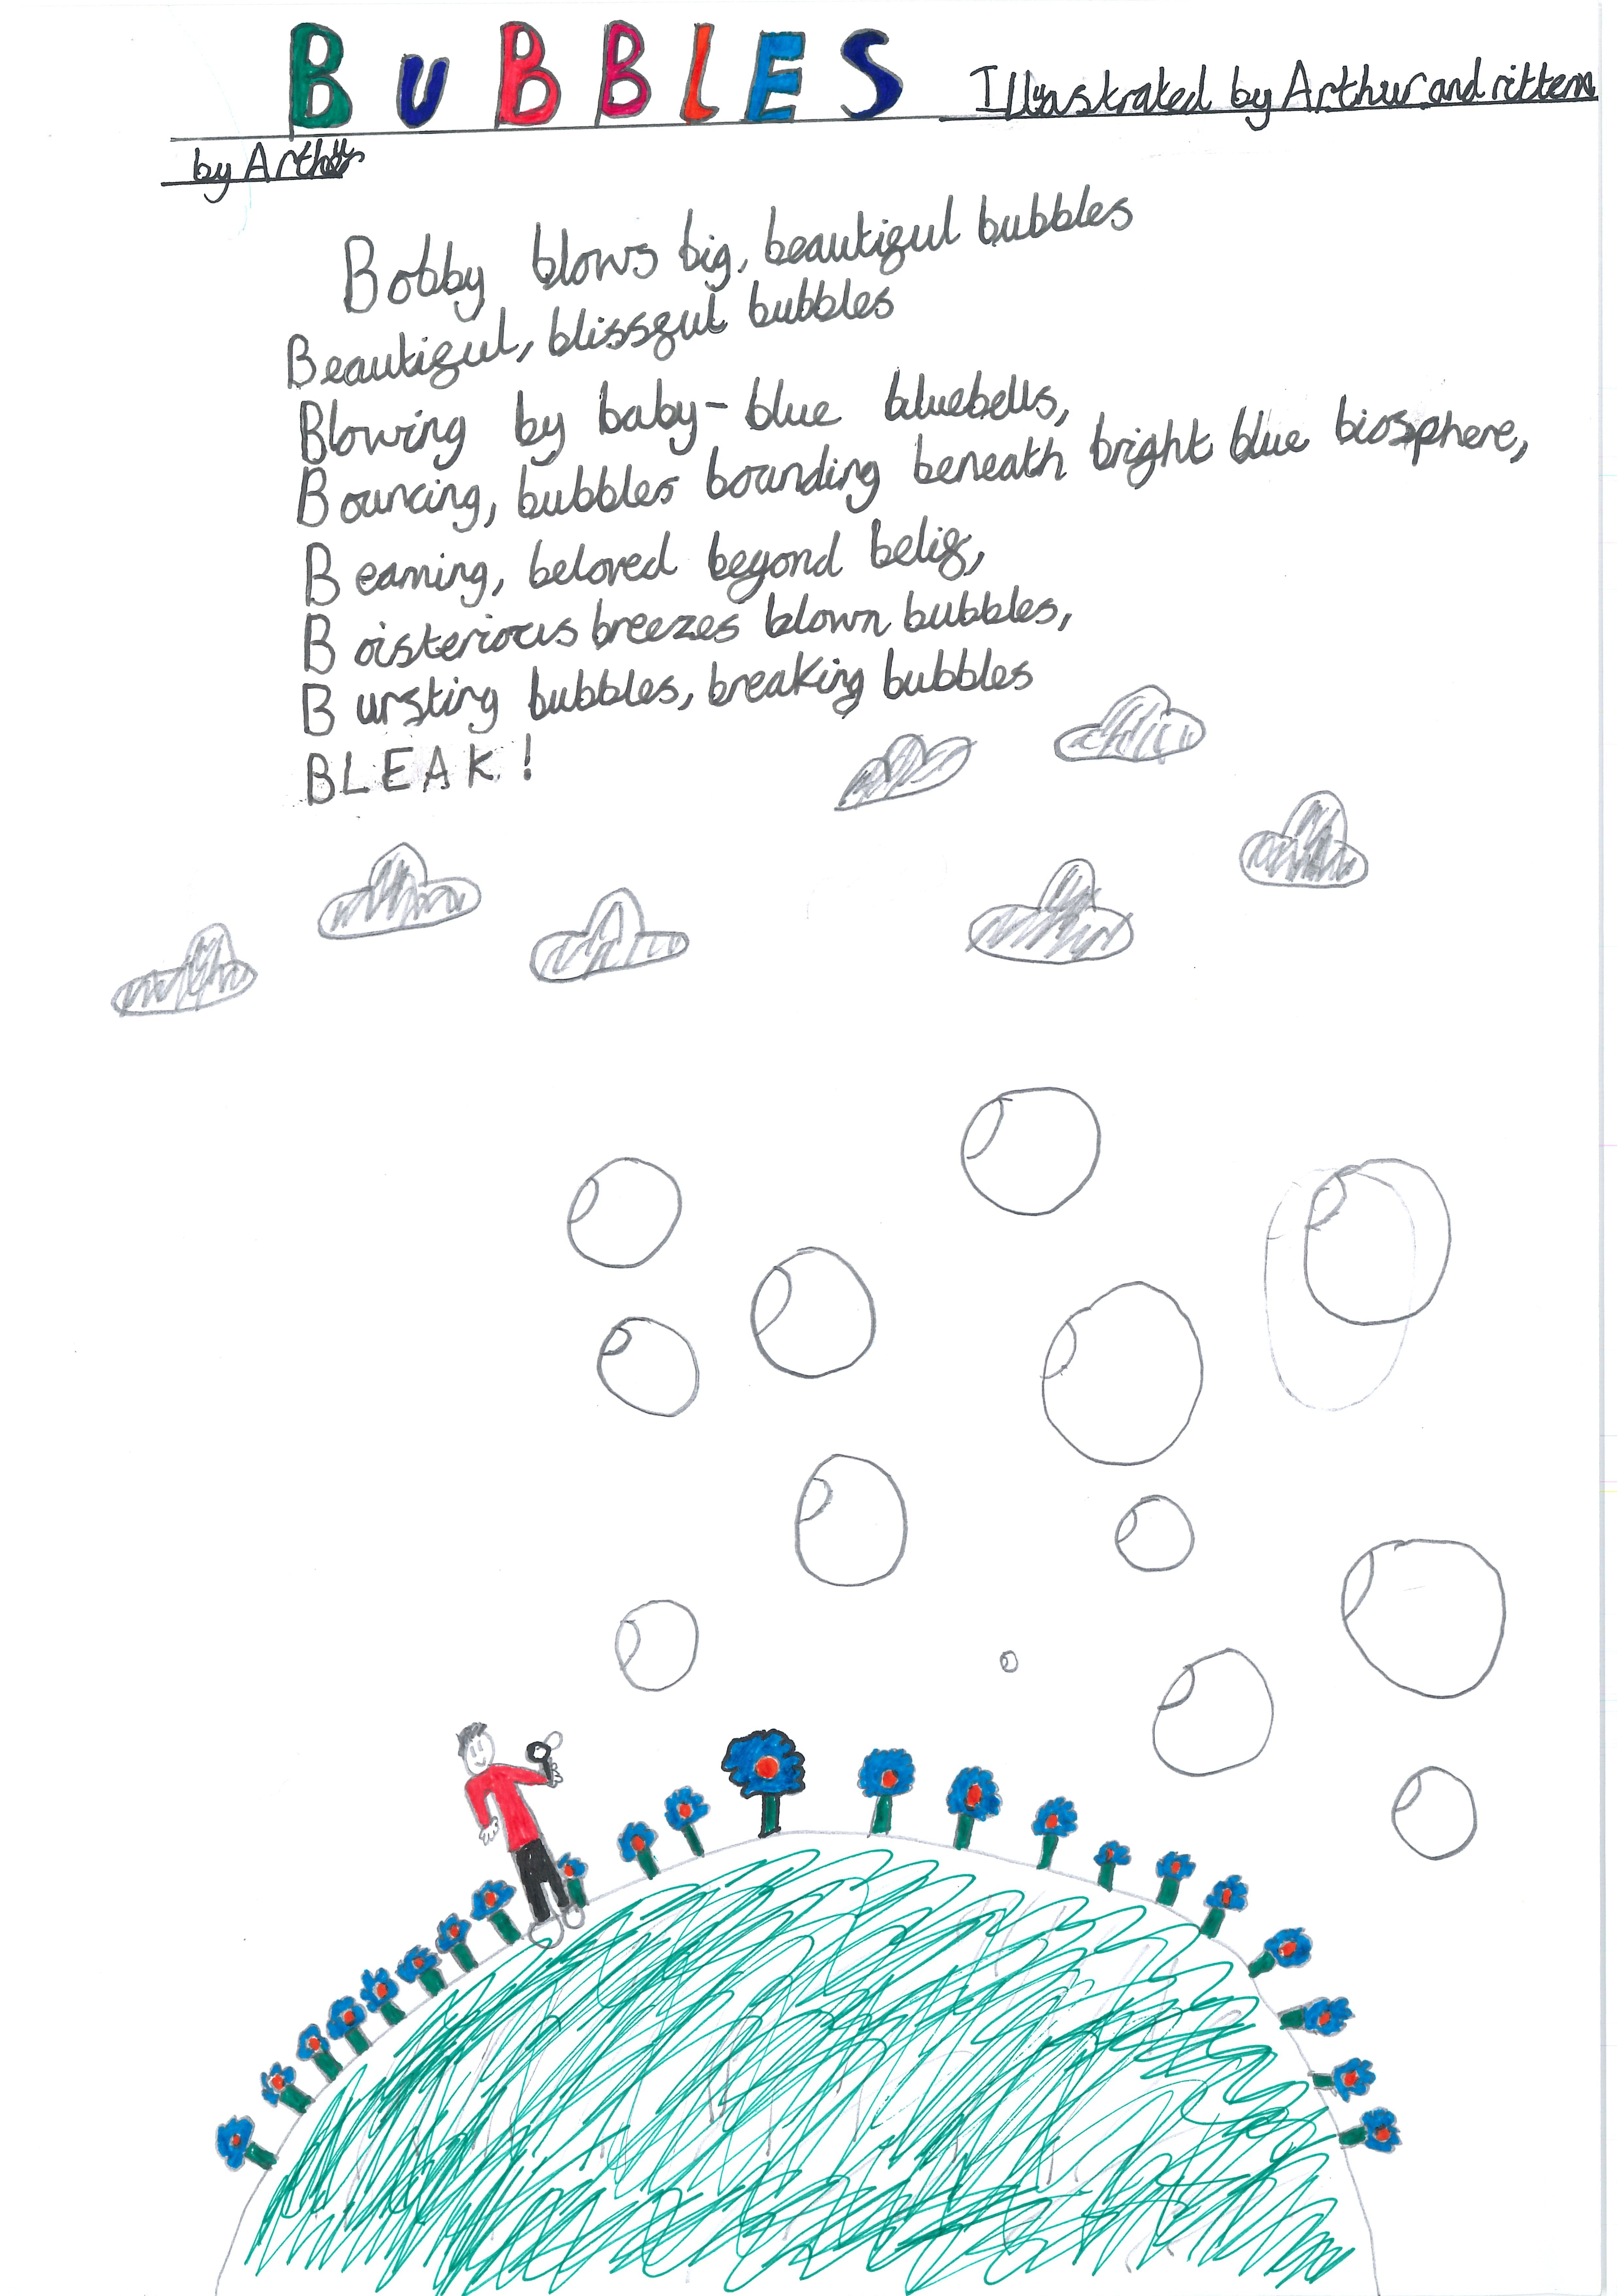 BUBBLES Illyastrated by Arthur and ritten
by Arthur
Bobby blows big, beautiful bubbles
Beautiful, blissful bubbles
Blowing by baby-blue bluebells,
Bouncing, bubbles bounding beneath bright blue biosphere,
Beaming, beloved beyond belif,
Boisterious breezes blown bubbles,
Bursting bubbles, breaking bubbles
BLEAK!